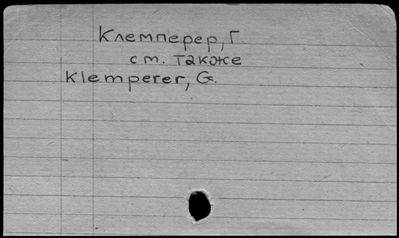 Клемперер, Г
см. также
Klemperer, G.